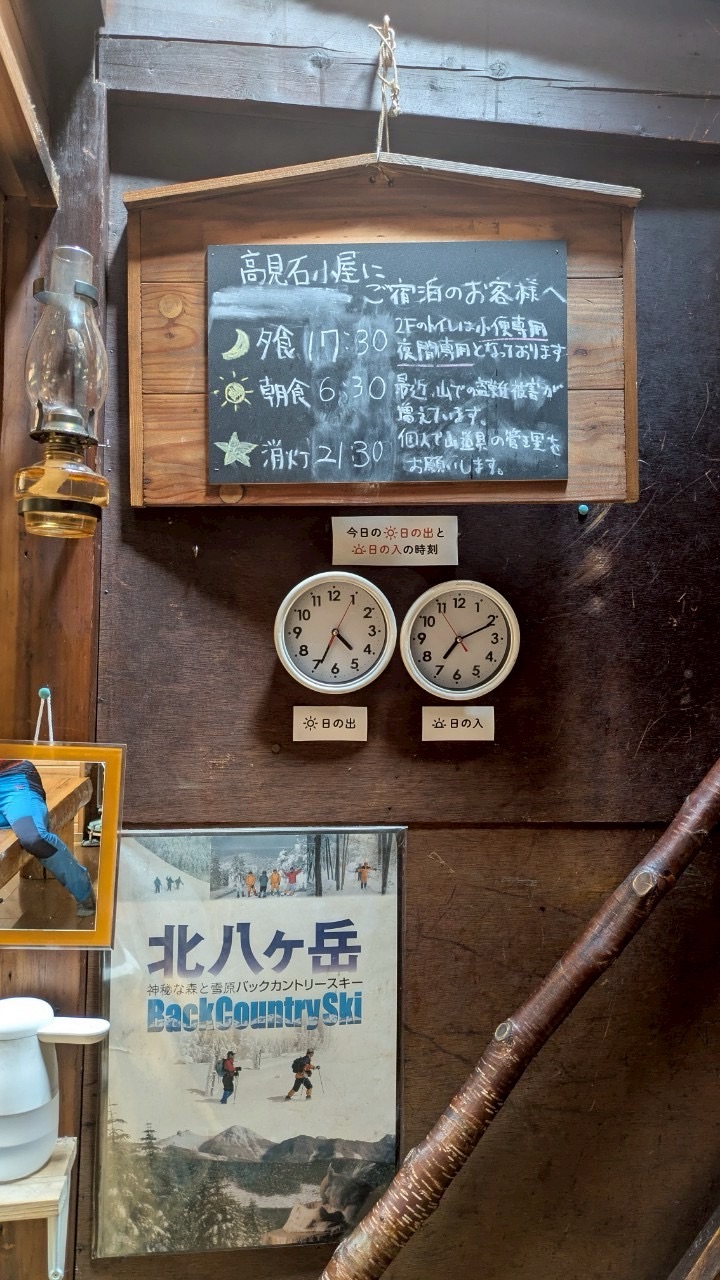 高見石小屋に
ご宿泊のお客様へ
夕食 17:30
朝食 6:30
消灯 21:30
2Fのトイレは小便専用
夜間専用となっております
最近、山での盗難被害が
増えています。
個人で山道具の管理を
お願いします。
今日の日の出と
日の入の時刻
12 1 2 3 4 5 6 7 8 9 10 11
12 1 2 3 4 5 6 7 8 9 10 11
日の出
日の入
北八ヶ岳
神秘な森と雪原バックカントリースキー
BackCountrySki